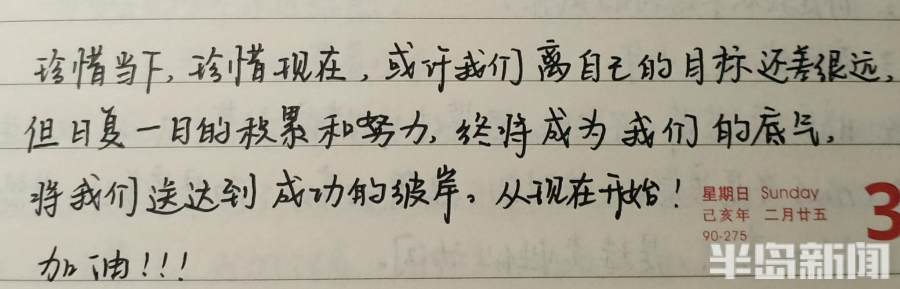 珍惜当下,珍惜现在,或许我们离自己的目标还差很远,
但日复一日的积累和努力,终将成为我们的底气,
将我们送达到成功的彼岸。从现在开始!
加油!!!
星期日 Sunday
己亥年 二月廿五
90-275
3
半岛新闻